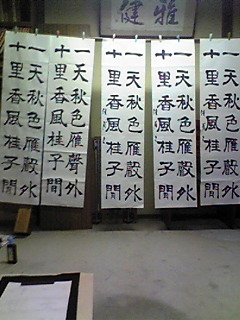 雅健
一天秋色雁聲外
十里香風桂子間
一天秋色雁聲外
十里香風桂子間
一天秋色雁聲外
十里香風桂子間
一天秋色雁聲外
十里香風桂子間
一天秋色雁聲外
十里香風桂子間